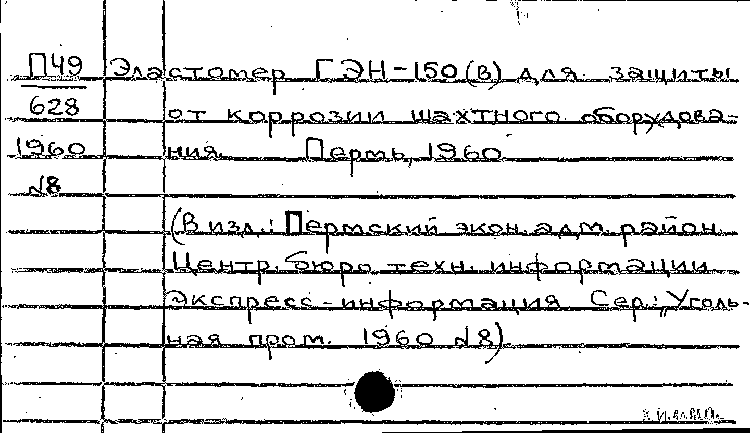 П49 Эластомер ГЭН-150(в) для защиты
628 от коррозии шахтного оборудова-
1960 ния. Пермь, 1960
№8
(В изд.: Пермский экон. адм. район
Центр. бюро техн. информации
Экспресс-информация Сер.: „Уголь-
ная пром. 1960 №8)